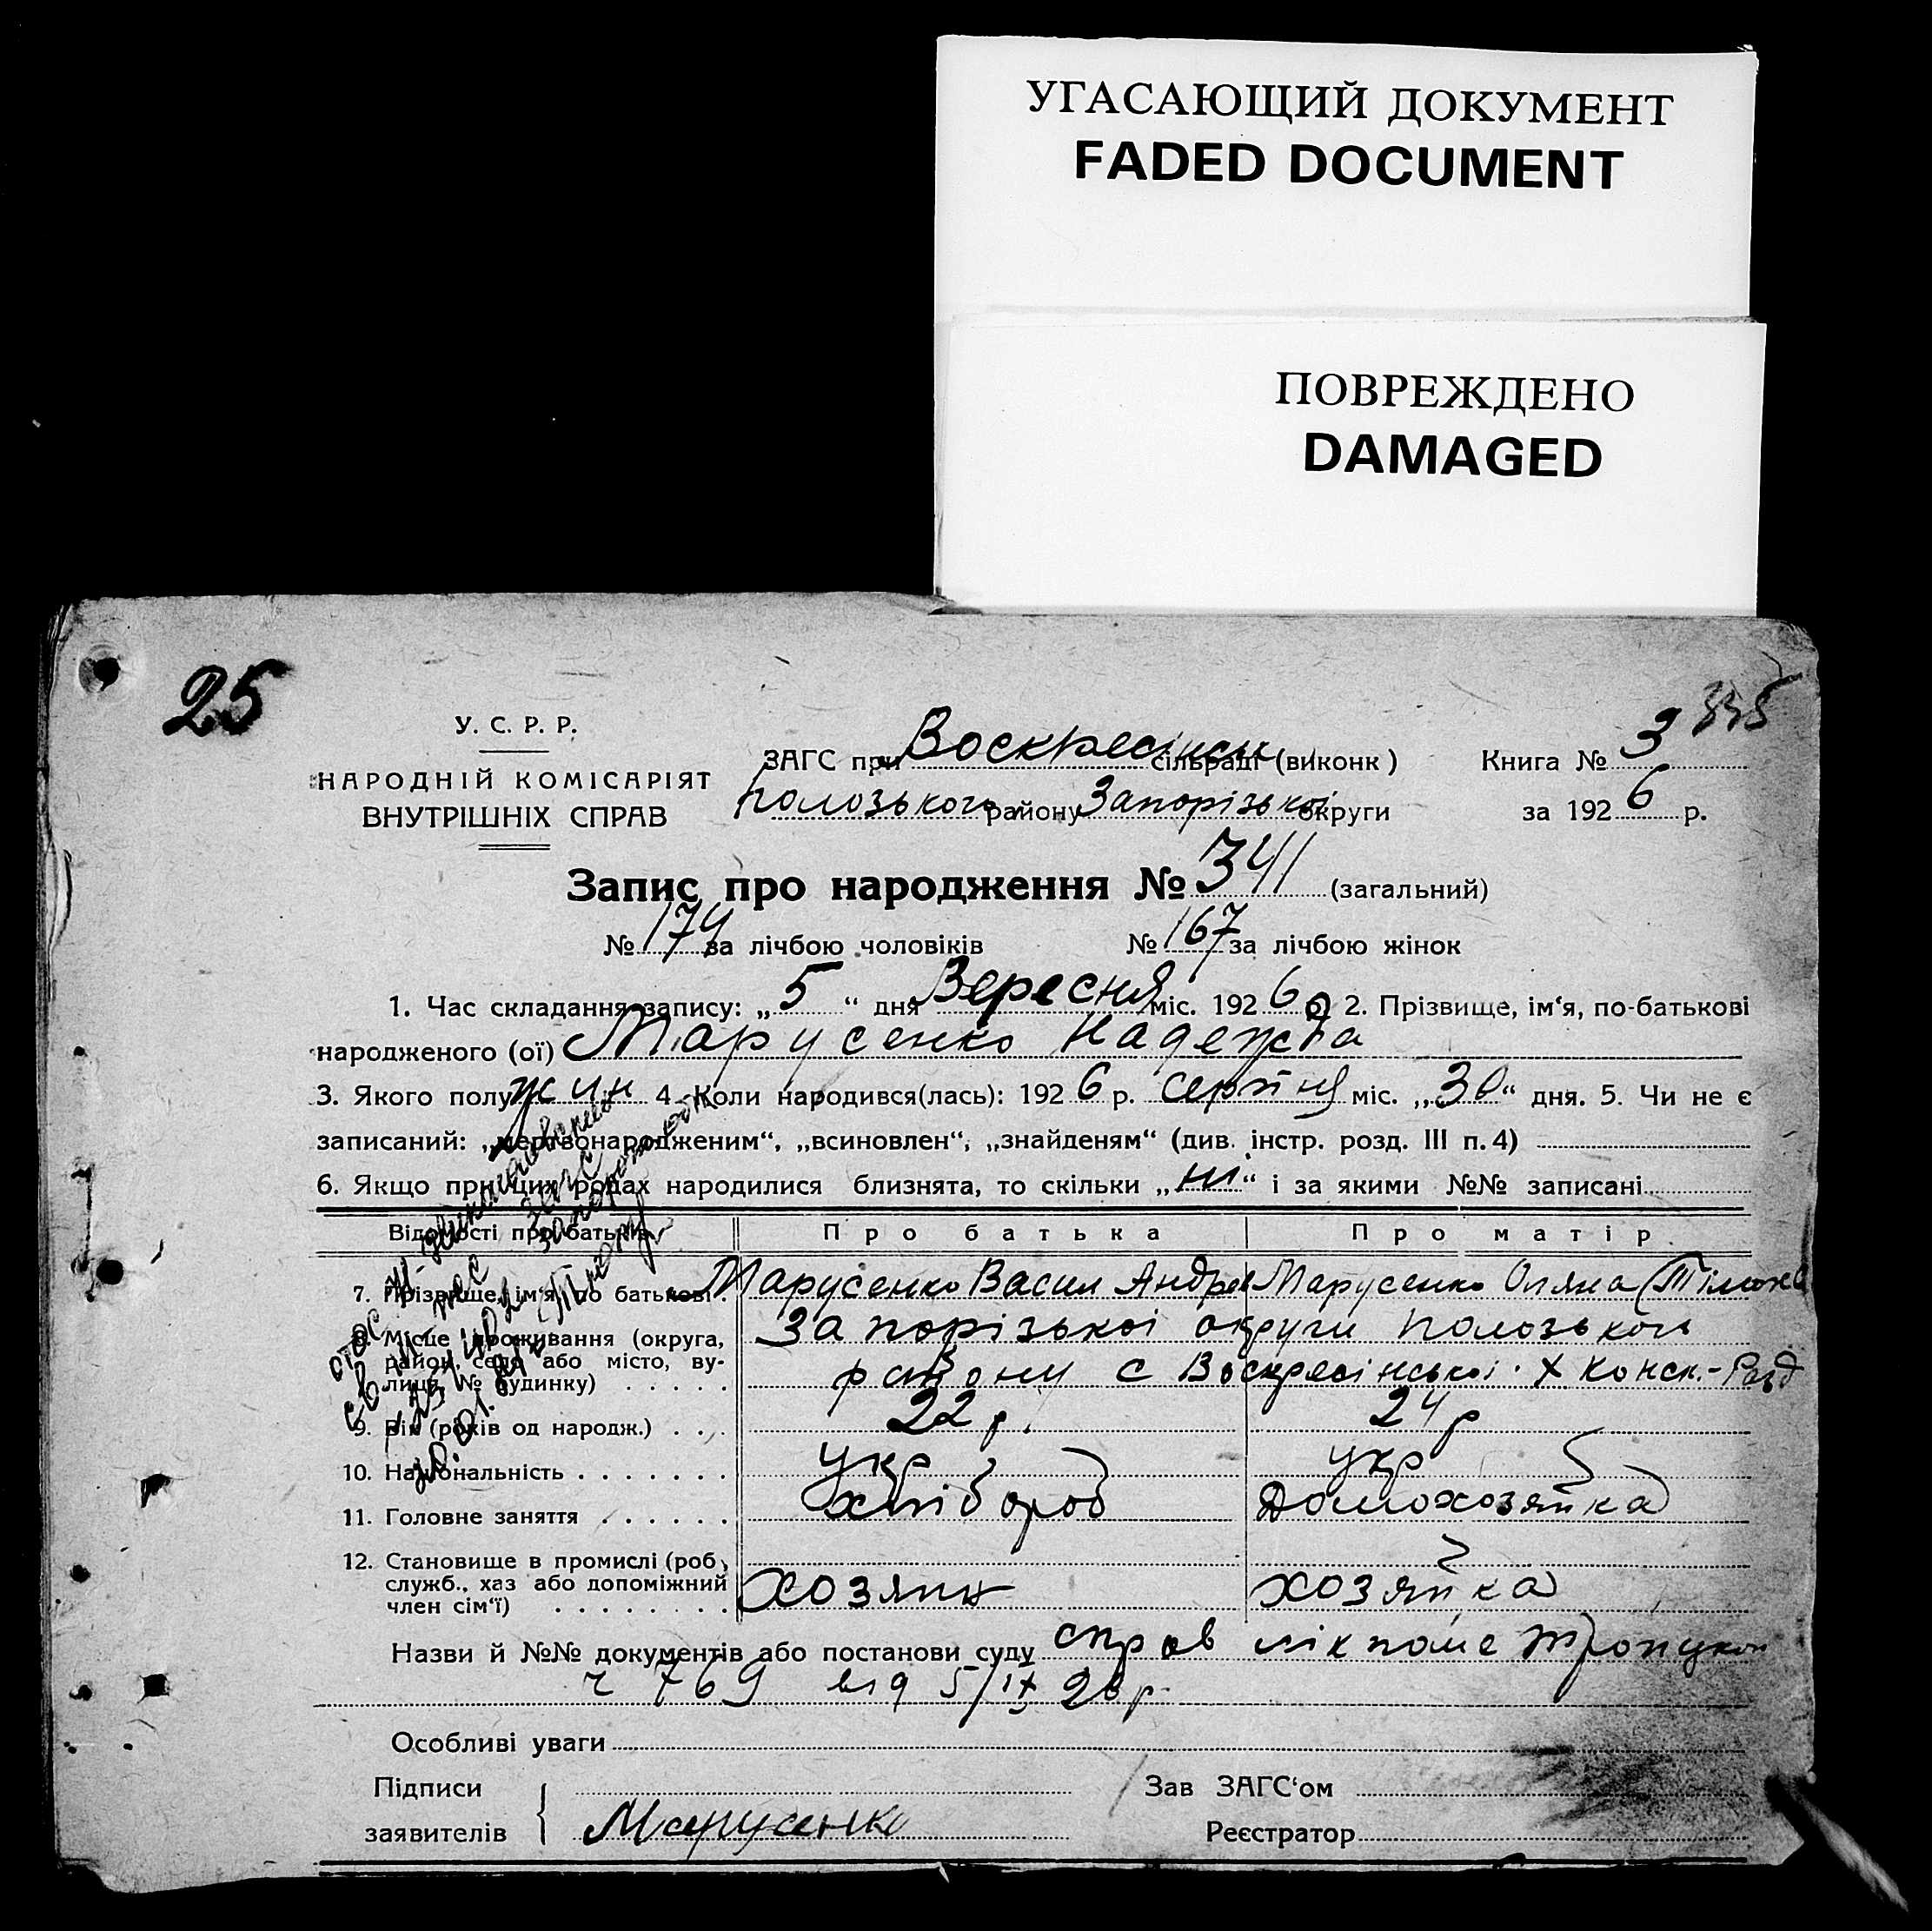 УГАСАЮЩИЙ ДОКУМЕНТ
FADED DOCUMENT
ПОВРЕЖДЕНО
DAMAGED
25
335
У. С. Р. Р.
НАРОДНІЙ КОМІСАРІЯТ
ВНУТРІШНІХ СПРАВ
ЗАГС при Воскресінськ сільраді (виконк) Книга № 3
Полозького району Запорізької округи за 1926 р.
Запис про народження № 341 (загальний)
№ 174 за лічбою чоловіків № 167 за лічбою жінок
1. Час складання запису: „5“ дня Вересня міс. 1926 р. 2. Прізвище, ім‘я, по-батькові
народженого (ої) Марусенко Надежда
3. Якого полу жин 4. Коли народився(лась): 1926 р. серпня міс. „30“ дня. 5. Чи не є
записаний: „мертвонародженим“, „всиновлен“, „знайденям“ (див. інстр. розд. III п. 4)
6. Якщо при цих родах народилися близнята, то скільки „ні“ і за якими №№ записані
Відомості про батьків Про батька Про матір
7. Прізвище, ім‘я, по батькові Марусенко Васил Андре Марусенко Оляна (Тімох
8. Місце проживання (округа, район, село або місто, вулиця, № будинку) Запорізької округи Полозького
району с Воскресінської х Конск.-Разд
9. Вік (років од народж.) 22 р. 24 р
10. Національність укр укр
11. Головне заняття хліб ороб домохозяйка
12. Становище в промислі (роб., служб., хаз або допоміжний член сім‘ї) хозяин хозяйка
Назви й №№ документів або постанови суду справ
ч 769 від 5/ІХ 26 р.
Особливі уваги
Підписи Зав ЗАГС‘ом
заявителів Марусенко Реєстратор